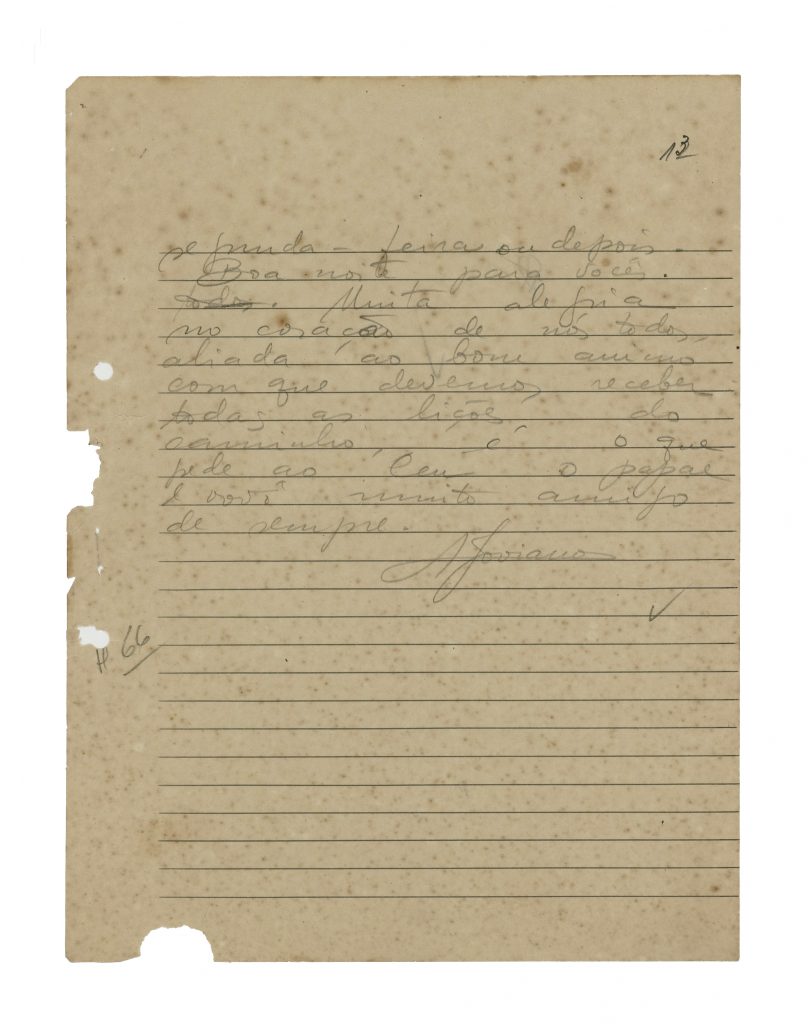 13
segunda - feira ou depois.
Boa noite para vocês.
todos. Muita alegria
no coração de nós todos,
aliada ao bom animo
com que devemos receber
todas as lições do
caminho, é o que
pede ao Ceu o papae
e vovô muito amigo
de sempre.
A Joviano
66